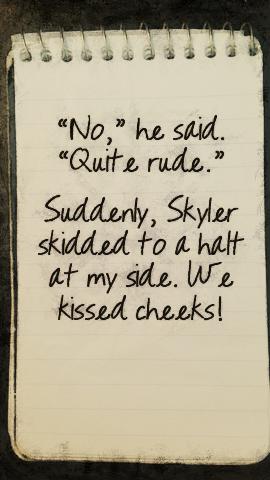 “No,” he said.
“Quite rude.”
Suddenly, Skyler
skidded to a halt
at my side. We
kissed cheeks!